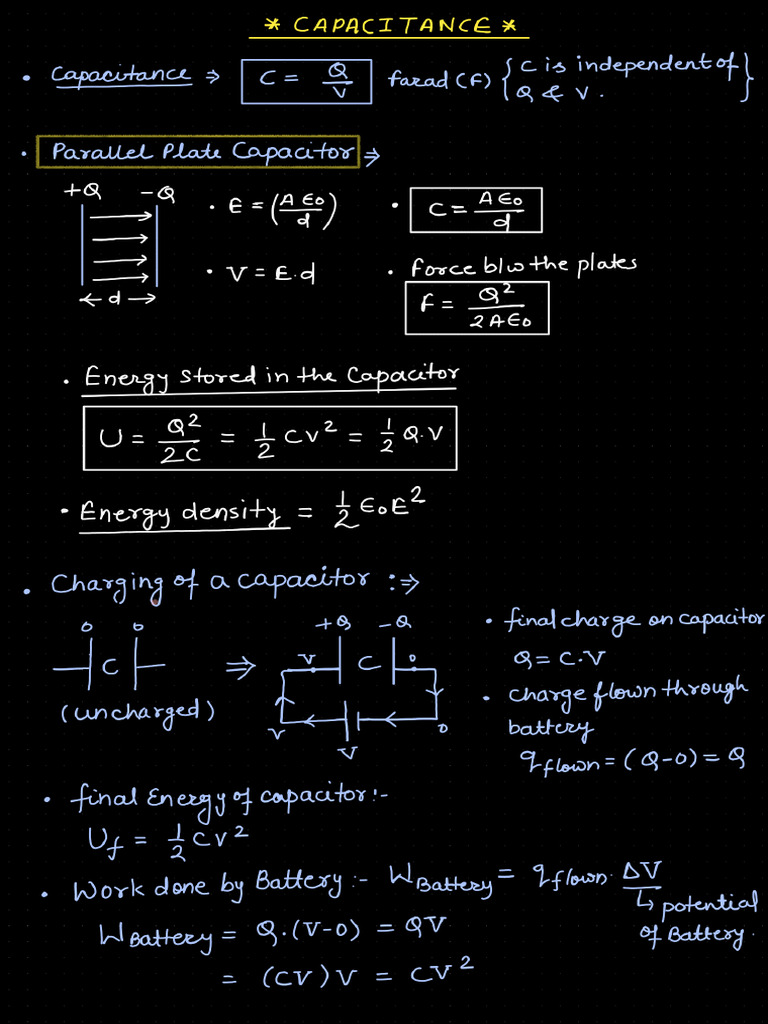 * CAPACITANCE *
• Capacitance ⇒ C = Q/V farad (F) { C is independent of Q & V. }
• Parallel Plate Capacitor ⇒
+Q -Q
• E = (A ϵ0/d) • C = A ϵ0/d
• V = E.d • force b/w the plates
← d → F = Q²/2Aϵ0
• Energy stored in the Capacitor
U = Q²/2C = 1/2 CV² = 1/2 Q.V
• Energy density = 1/2 ϵ0E²
• Charging of a capacitor :⇒
0 0 +Q -Q
C ⇒ V C 0
(uncharged) V V 0
• final charge on capacitor
Q = C.V
• charge flown through
battery
q flown = (Q-0) = Q
• final Energy of capacitor:-
Uf = 1/2 CV²
• Work done by Battery :- W Battery = q flown. ΔV
↳ potential
of Battery.
W Battery = Q.(V-0) = QV
= (CV)V = CV²